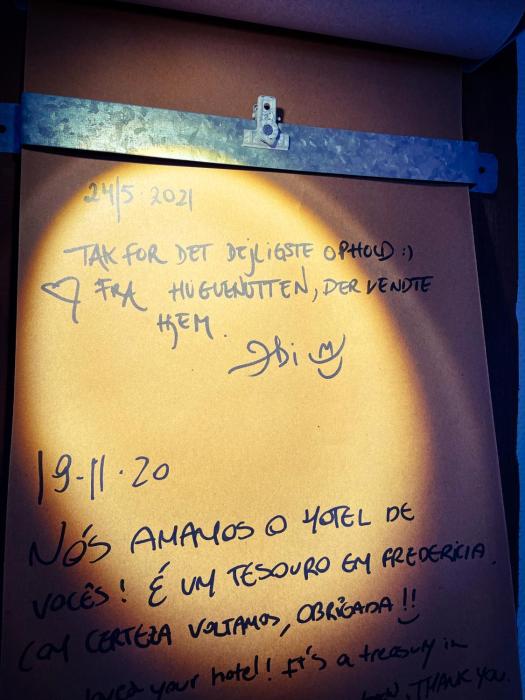 24/5-2021
TAK FOR DET DEJLIGSTE OPHOLD :)
♡ FRA HUGUENOTTEN, DER VENDTE
HJEM.
19-11-20
NÓS AMAMOS O HOTEL DE
VOCÊS! É UM TESOURO EM FREDERICIA.
COM CERTEZA VOLTAMOS, OBRIGADA!!
loved your hotel! It's a treasury in
THANK YOU.